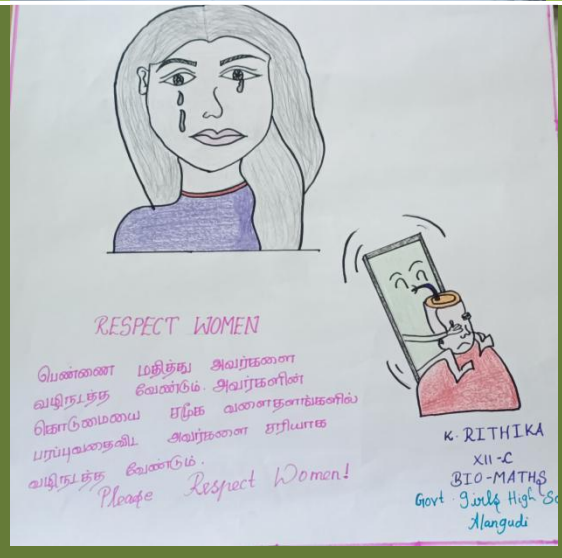 RESPECT WOMEN
பெண்ணை மதித்து அவர்களை
வழிநடத்த வேண்டும். அவர்களின்
கொடுமையை சமூக வளைதளங்களில்
பரப்புவதைவிட அவர்களை சரியாக
வழிநடத்த வேண்டும்.
Please Respect Women!
K. RITHIKA
XII-C
BIO-MATHS
Govt. Girls High Sc
Alangudi